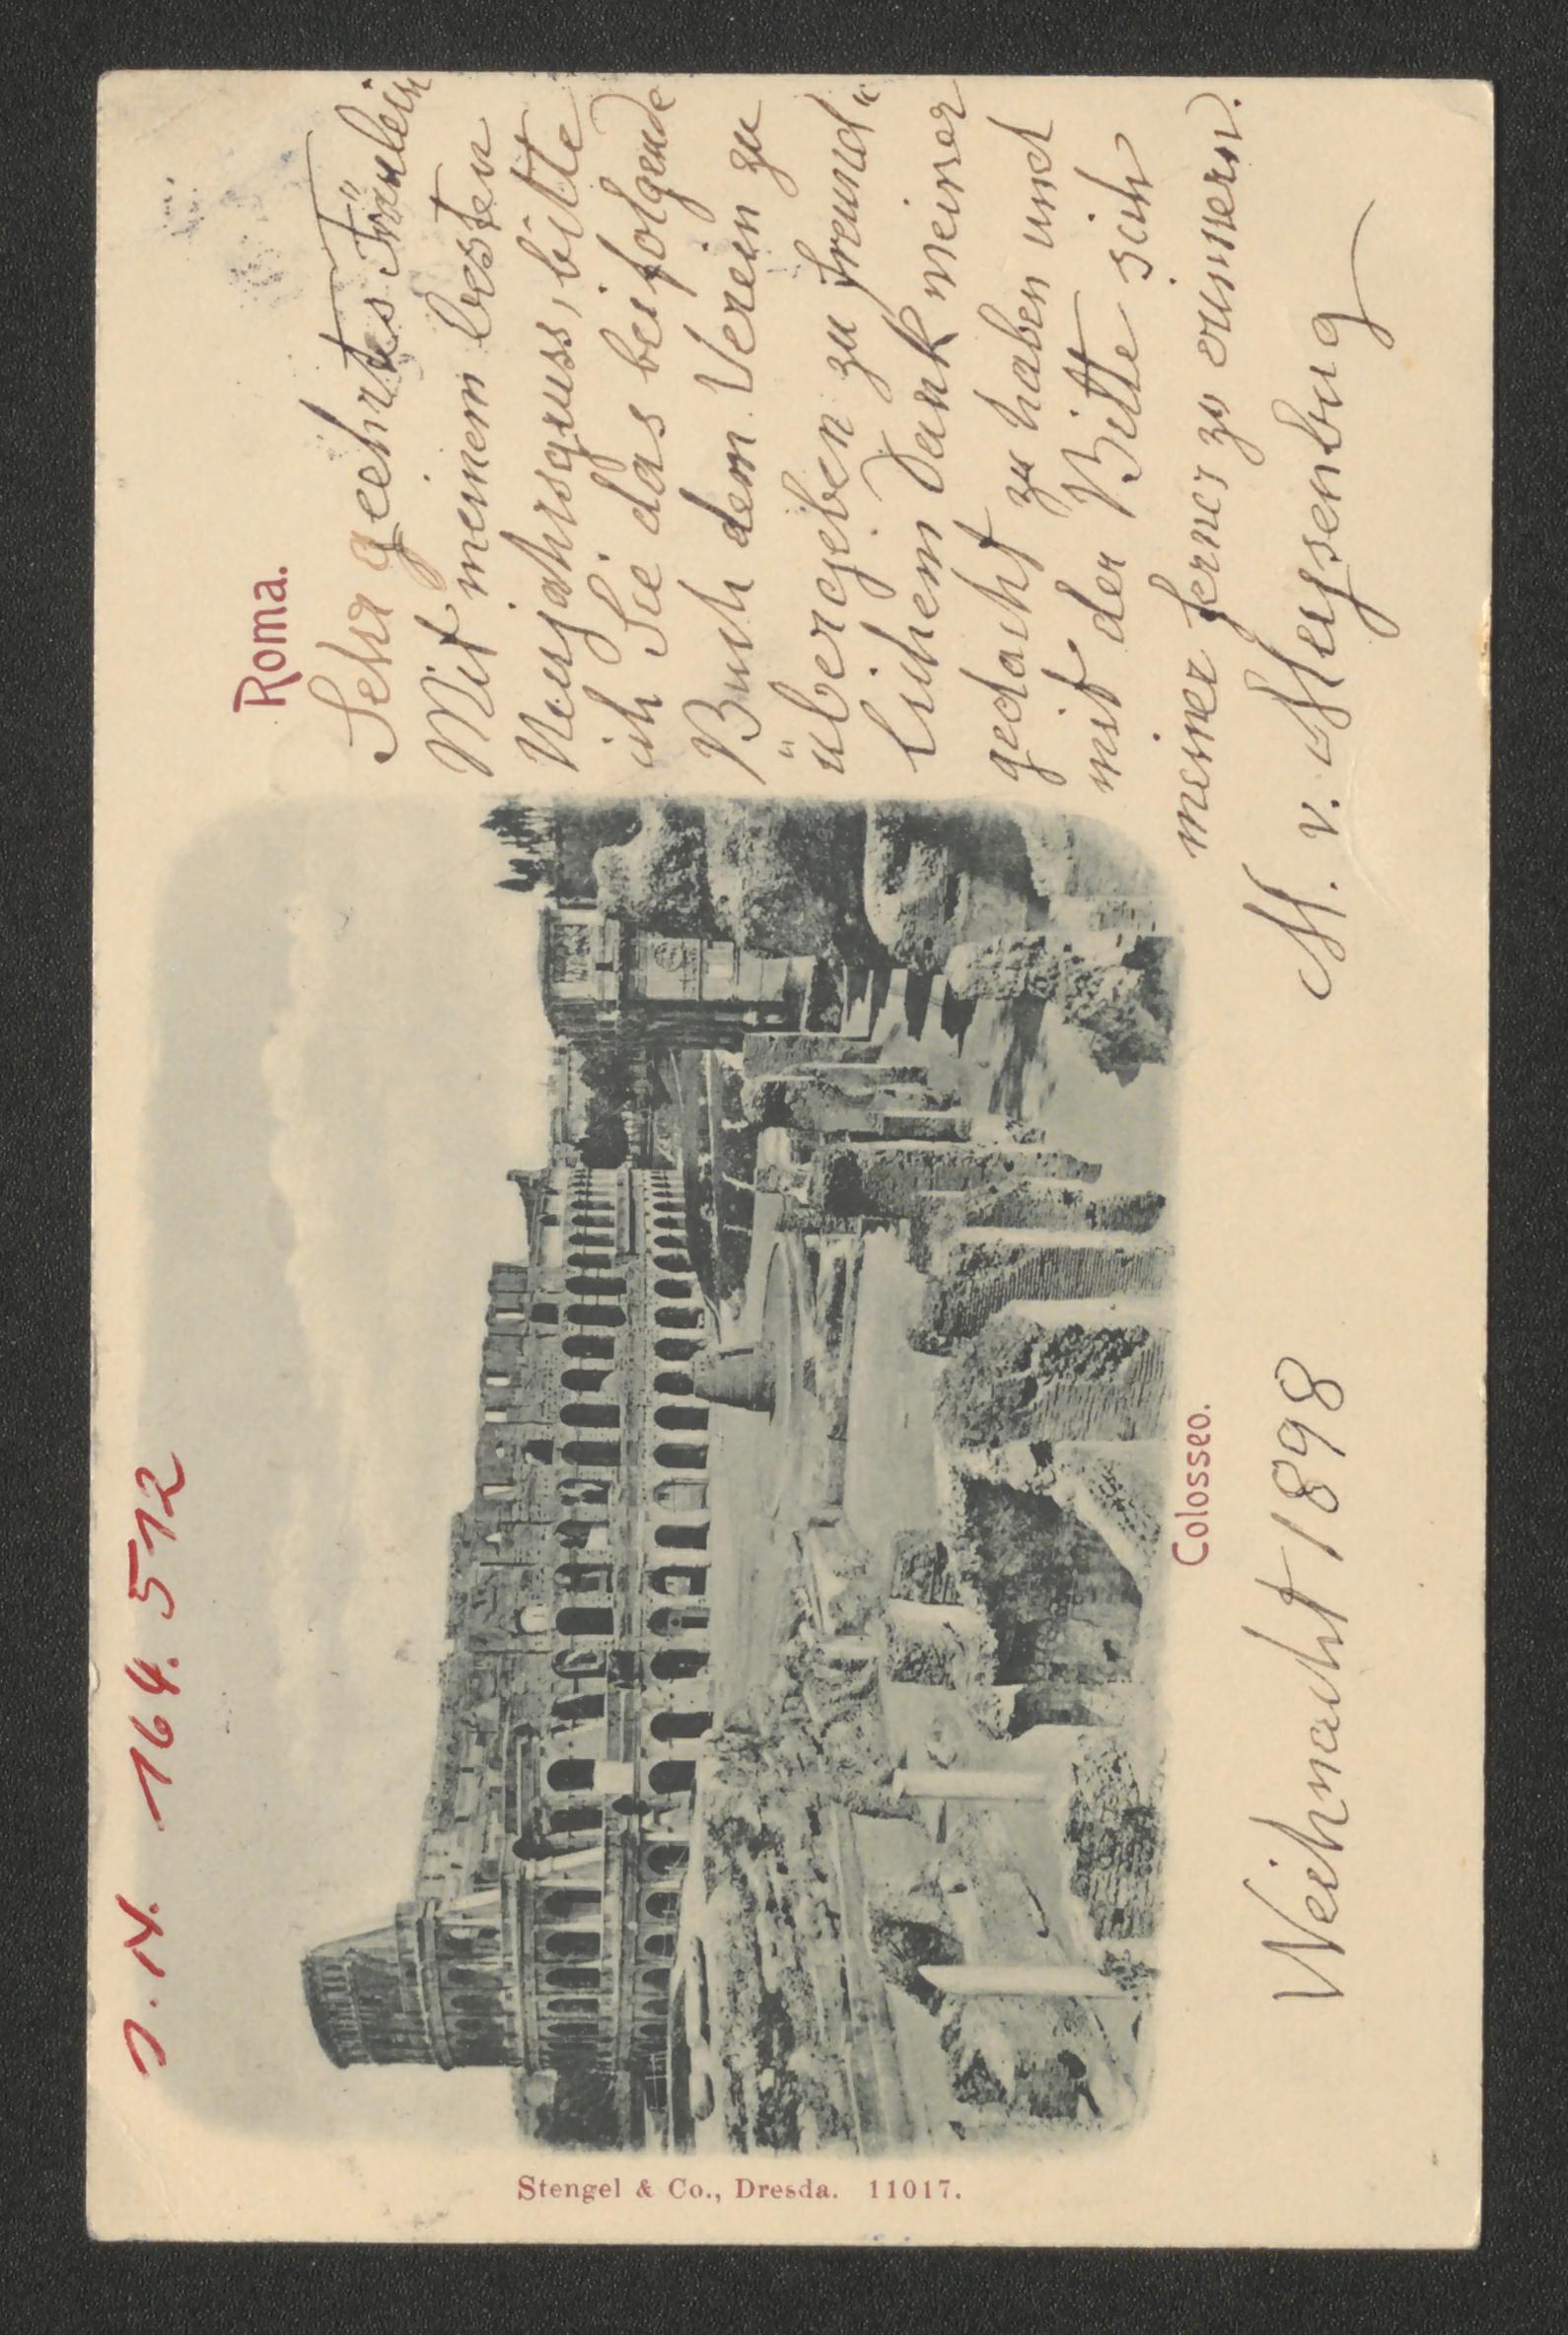 J. N. 164.512
Roma.
Sehr geehrtes Fräulein
Mit meinem besten
Neujahrsgruss, bitte
ich Sie das beifolgende
Buch dem Verein zu
übergeben zu freund„
lichem Dank meiner
gedacht zu haben und
mit der Bitte sich
meiner ferner zu erinnern.
M. v. Meysenbug
Colosseo.
Weihnacht 1898
Stengel & Co., Dresda. 11017.